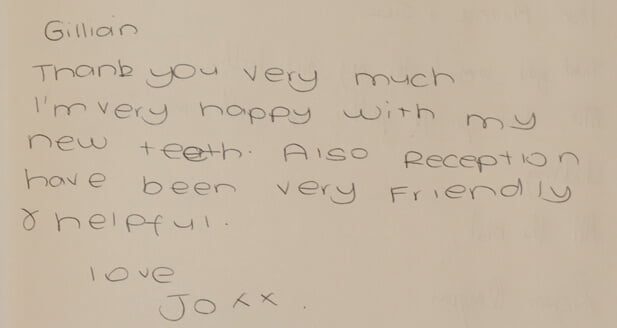 Gillian
Thank you very much
I'm very happy with my
new teeth. Also Reception
have been very Friendly
& helpful.
love
Jo xx.